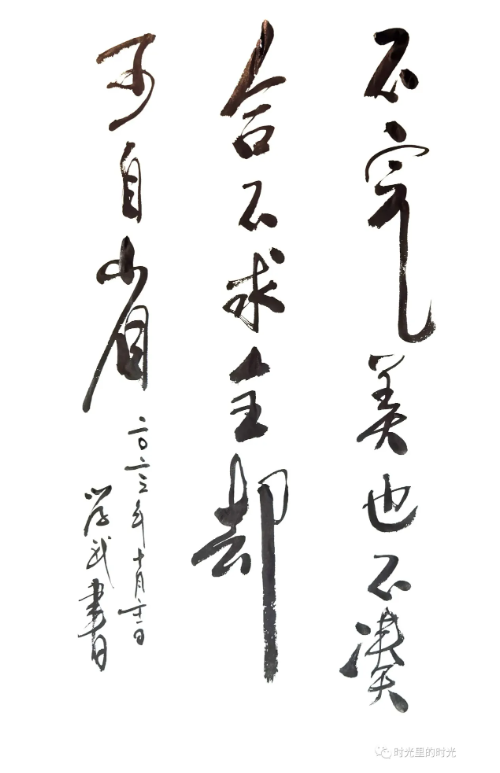 不完美也不凑
合不求全却
可自省
二〇二三年十月
学武書
时光里的时光